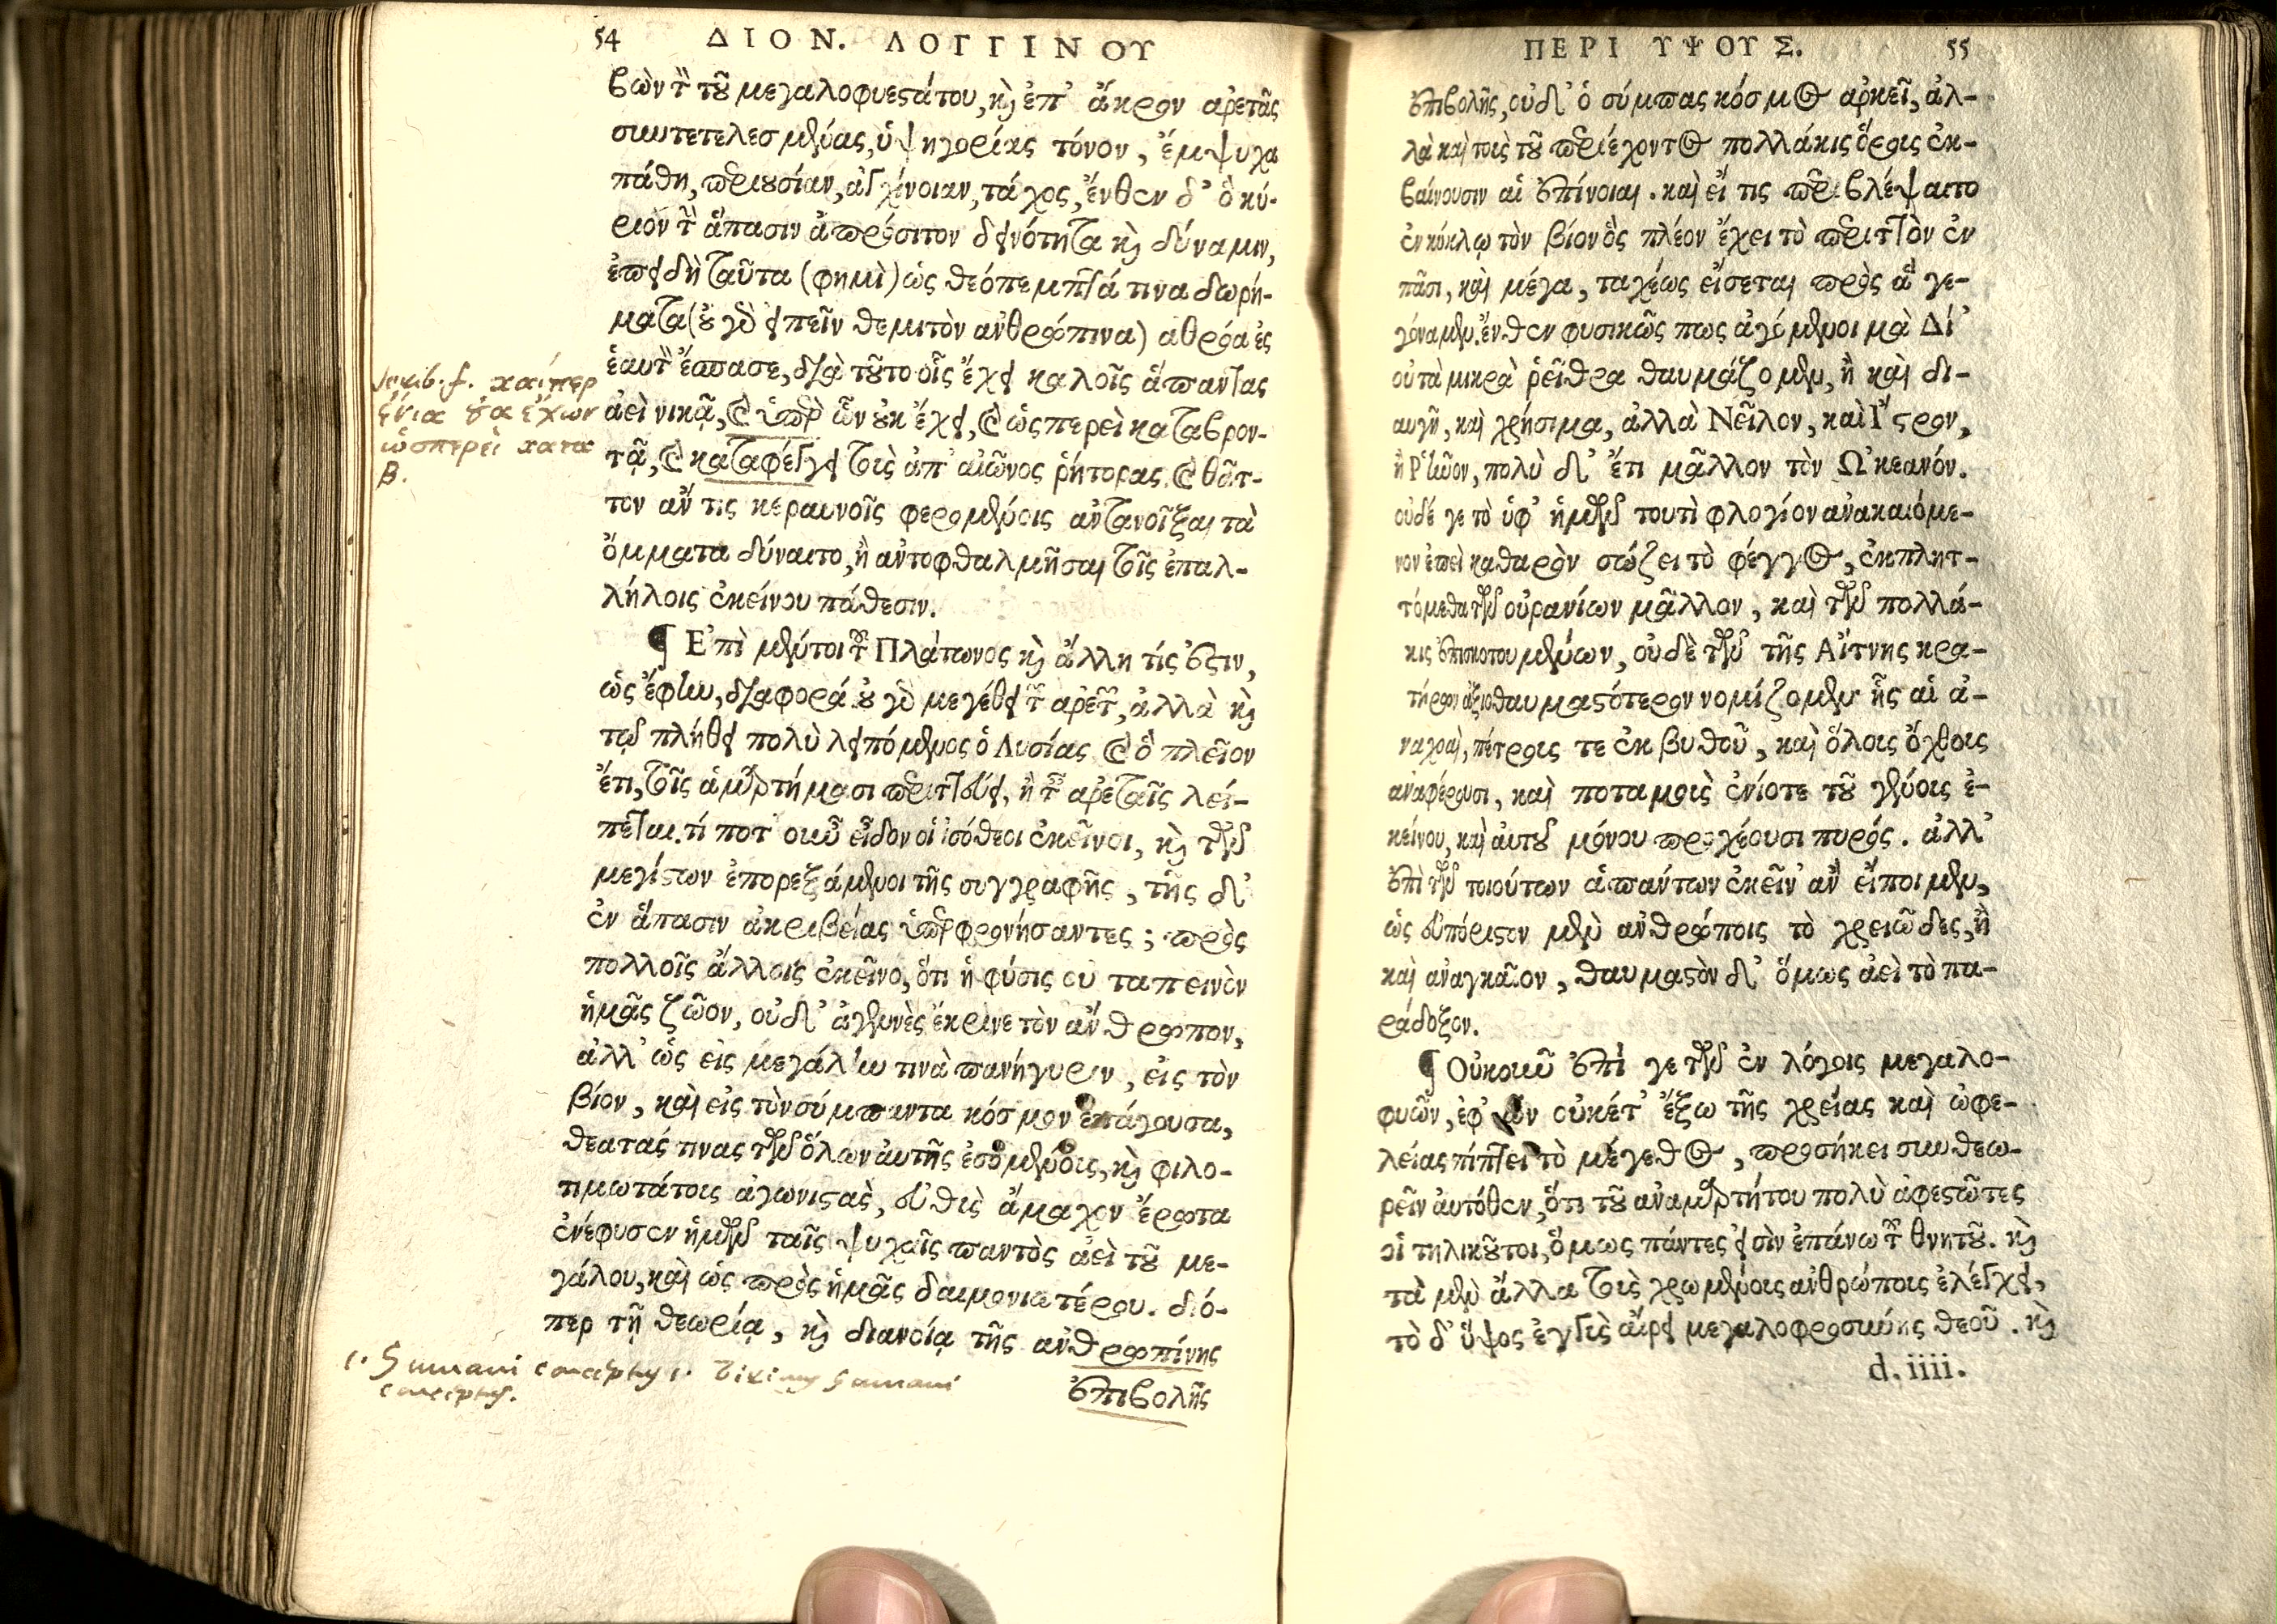 54 ΔΙΟΝ. ΛΟΓΓΙΝΟΥ
βὼν τὸ τοῦ μεγαλοφυεστάτου, καὶ ἐπ' ἄκρον ἀρετὰς
συντετελεσμένας, ὑψηγορίας τόνον, ἔμψυχα
πάθη, περιουσίαν, ἀγχίνοιαν, τάχος, ἔνθεν δ' ὃ κύ-
ριον τὴν ἅπασιν ἀπρόσιτον δεινότητα καὶ δύναμιν,
ἐπειδὴ ταῦτα (φημὶ) ὡς θεόπεμπτά τινα δωρή-
ματα (οὐ γὰρ εἰπεῖν θεμιτὸν ἀνθρώπινα) ἀθρόα ἐς
ἑαυτὸν ἔσπασε, διὰ τοῦτο οἷς ἔχει καλοῖς ἅπαντας
ἀεὶ νικᾷ, καὶ ὑπὲρ ὧν οὐκ ἔχει, καὶ ὡςπερεὶ καταβρον-
τᾷ, καὶ καταφέγγει τοὺς ἀπ' αἰῶνος ῥήτορας. καὶ θᾶτ-
τον ἄν τις κεραυνοῖς φερομένοις ἀντανοῖξαι τὰ
ὄμματα δύναιτο, ἢ ἀντοφθαλμῆσαι τοῖς ἐπαλ-
λήλοις ἐκείνου πάθεσιν.
¶ Ἐπὶ μέντοι τοῦ Πλάτωνος καὶ ἄλλη τίς ἐστιν,
ὡς ἔφην, διαφορά. οὐ γὰρ μεγέθει τῶν ἀρετῶν, ἀλλὰ καὶ
τῷ πλήθει πολὺ λειπόμενος ὁ Λυσίας καὶ ὃ πλεῖον
ἔτι, τοῖς ἁμαρτήμασι περιττεύει, ἢ ταῖς ἀρεταῖς λεί-
πεται. τί ποτ' οὖν εἶδον οἱ ἰσόθεοι ἐκεῖνοι, καὶ τῶν
μεγίστων ἐπορεξάμενοι τῆς συγγραφῆς, τῆς δ'
ἐν ἅπασιν ἀκριβείας ὑπερφρονήσαντες; πρὸς
πολλοῖς ἄλλοις ἐκεῖνο, ὅτι ἡ φύσις οὐ ταπεινὸν
ἡμᾶς ζῶον, οὐδ' ἀγενὲς ἔκρινε τὸν ἄνθρωπον,
ἀλλ' ὡς εἰς μεγάλην τινὰ πανήγυριν, εἰς τὸν
βίον, καὶ εἰς τὸν σύμπαντα κόσμον ἐπάγουσα,
θεατάς τινας τῶν ὅλων αὐτῆς ἐσομένοις, καὶ φιλο-
τιμωτάτοις ἀγωνιστὰς, εὐθὺς ἄμαχον ἔρωτα
ἐνέφυσεν ἡμῶν ταῖς ψυχαῖς παντὸς ἀεὶ τοῦ με-
γάλου, καὶ ὡς πρὸς ἡμᾶς δαιμονιωτέρου. διό-
περ τῇ θεωρίᾳ, καὶ διανοίᾳ τῆς ἀνθρωπίνης
ἐπιβολῆς
καίπερ
ἔνια οὐκ ἔχων
ὡσπερεὶ κατα
β.
ΠΕΡΙ ΥΨΟΥΣ. 55
ἐπιβολῆς, οὐδ' ὁ σύμπας κόσμος ἀρκεῖ, ἀλ-
λὰ καὶ τοὺς τοῦ περιέχοντος πολλάκις ὅροις ἐκ-
βαίνουσιν αἱ ἐπίνοιαι. καὶ εἴ τις περιβλέψαιτο
ἐν κύκλῳ τὸν βίον ὃς πλέον ἔχει τὸ περιττὸν ἐν
πᾶσι, καὶ μέγα, ταχέως εἴσεται πρὸς ἃ γε-
γόναμεν. ἔνθεν φυσικῶς πως ἀγόμενοι μὰ Δί'
οὐ τὰ μικρὰ ῥεῖθρα θαυμάζομεν, ἢ καὶ δι-
αυγῆ, καὶ χρήσιμα, ἀλλὰ Νεῖλον, καὶ Ἴστρον,
ἢ Ῥῆνον, πολὺ δ' ἔτι μᾶλλον τὸν Ὠκεανόν.
οὐδέ γε τὸ ὑφ' ἡμῶν τουτὶ φλογίον ἀνακαιόμε-
νον ἐπεὶ καθαρὸν σώζει τὸ φέγγος, ἐκπλητ-
τόμεθα τῶν οὐρανίων μᾶλλον, καὶ τῶν πολλά-
κις ἐπισκοτουμένων, οὐδὲ τῶν τῆς Αἴτνης κρα-
τήρων ἀξιοθαυμαστότερον νομίζομεν ἧς αἱ ἀ-
ναχοαὶ, πέτρους τε ἐκ βυθοῦ, καὶ ὅλους ὄχθοις
ἀναφέρουσι, καὶ ποταμοὺς ἐνίοτε τοῦ γένους ἐ-
κείνου, καὶ αὐτοῦ μόνου προχέουσι πυρός. ἀλλ'
ἐπὶ τῶν τοιούτων ἁπάντων ἐκεῖν' ἂν εἴποιμεν,
ὡς εὐπόριστον μὲν ἀνθρώποις τὸ χρειῶδες, ἢ
καὶ ἀναγκαῖον, θαυμαστὸν δ' ὅμως ἀεὶ τὸ πα-
ράδοξον.
¶ Οὐκοῦν ἐπί γε τῶν ἐν λόγοις μεγαλο-
φυῶν, ἐφ' ὧν οὐκέτ' ἔξω τῆς χρείας καὶ ὠφε-
λείας πίπτει τὸ μέγεθος, προσήκει συνθεω-
ρεῖν αὐτόθεν, ὅτι τοῦ ἀναμαρτήτου πολὺ ἀφεστῶτες
οἱ τηλικοῦτοι, ὅμως πάντες εἰσὶν ἐπάνω τοῦ θνητοῦ. καὶ
τὰ μὲν ἄλλα τοὺς χρωμένοις ἀνθρώποις ἐλέγχει,
τὸ δ' ὕψος ἐγγὺς αἴρει μεγαλοφροσύνης θεοῦ. καὶ
d.iiii.